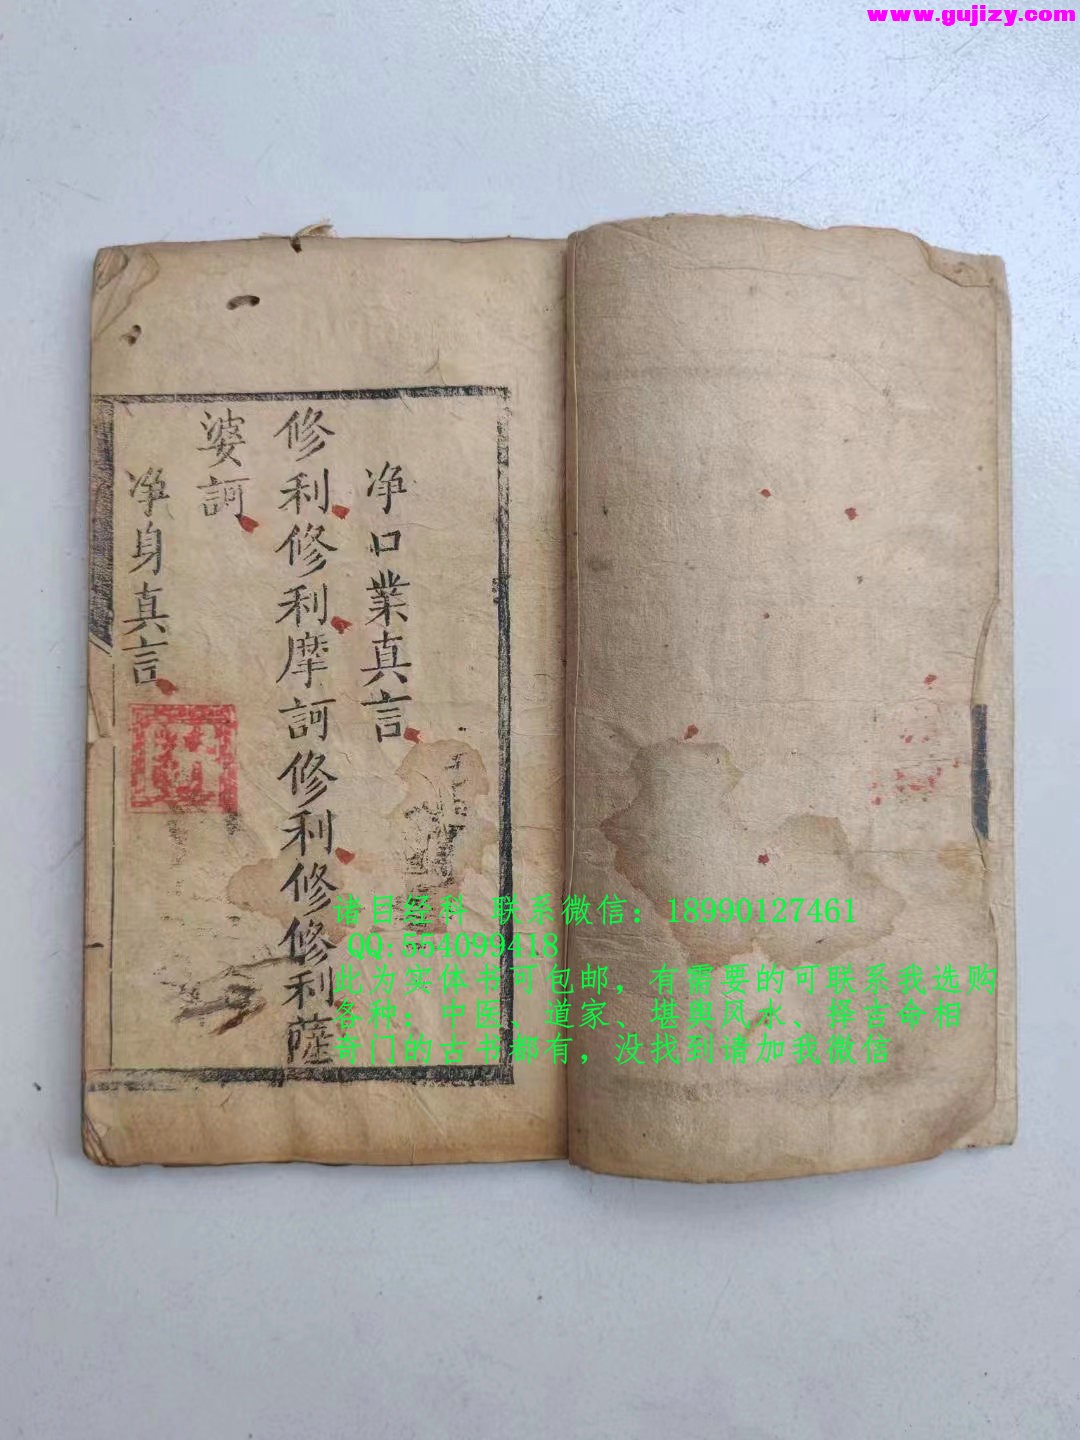 www.gujizy.com
净口業真言
修利修利摩訶修利修修利薩
婆訶
净身真言
诸目经科 联系微信：18990127461
QQ:554099418
此为实体书可包邮，有需要的可联系我选购
各种：中医、道家、堪舆风水、择吉命相
奇门的古书都有，没找到请加我微信